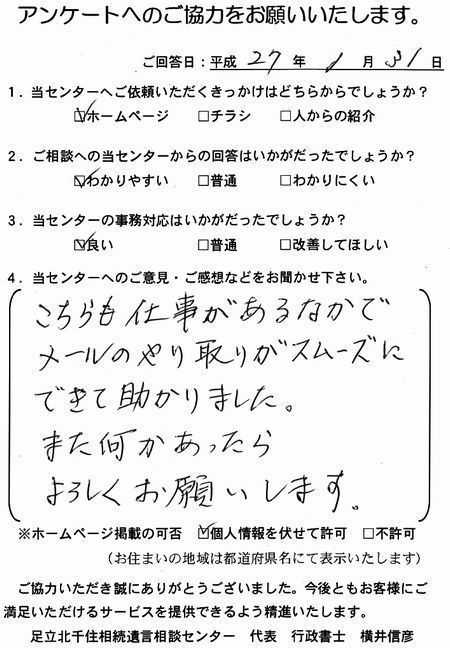 アンケートへのご協力をお願いいたします。
ご回答日：平成 27 年 1 月 31 日
1．当センターへご依頼いただくきっかけはどちらからでしょうか？
☑ホームページ □チラシ □人からの紹介
2．ご相談への当センターからの回答はいかがだったでしょうか？
☑わかりやすい □普通 □わかりにくい
3．当センターの事務対応はいかがだったでしょうか？
☑良い □普通 □改善してほしい
4．当センターへのご意見・ご感想などをお聞かせ下さい。
こちらも仕事があるなかで
メールのやり取りがスムーズに
できて助かりました。
また何かあったら
よろしくお願いします。
※ホームページ掲載の可否 ☑個人情報を伏せて許可 □不許可
（お住まいの地域は都道府県名にて表示いたします）
ご協力いただき誠にありがとうございました。今後ともお客様にご
満足いただけるサービスを提供できるよう精進いたします。
足立北千住相続遺言相談センター 代表 行政書士 横井信彦